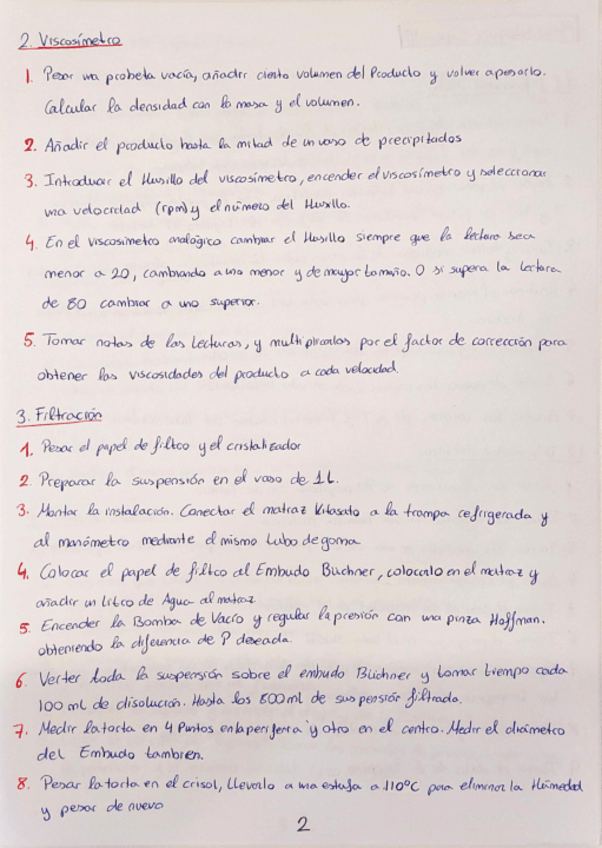 2. Viscosímetro
1. Pesar una probeta vacía, añadir cierto volumen del Producto y volver a pesarlo.
Calcular la densidad con la masa y el volumen.
2. Añadir el producto hasta la mitad de un vaso de precipitados
3. Introducir el Husillo del viscosímetro, encender el viscosímetro y seleccionar
una velocidad (rpm) y el número del Husillo.
4. En el viscosímetro analógico cambiar el Husillo siempre que la lectura sea
menor a 20, cambiando a uno menor y de mayor tamaño. O si supera la lectura
de 80 cambiar a uno superior.
5. Tomar notas de las lecturas, y multiplicarlas por el factor de corrección para
obtener las viscosidades del producto a cada velocidad.
3. Filtración
1. Pesar el papel de filtro y el cristalizador
2. Preparar la suspensión en el vaso de 1L.
3. Montar la instalación. Conectar el matraz Kitasato a la trampa refrigerada y
al manómetro mediante el mismo tubo de goma
4. Colocar el papel de filtro al Embudo Büchner, colocarlo en el matraz y
añadir un Litro de Agua al matraz
5. Encender la Bomba de Vacío y regular la presión con una pinza Hoffman.
obteniendo la diferencia de P deseada.
6. Verter toda la suspensión sobre el embudo Büchner y tomar tiempo cada
100 ml de disolución. Hasta los 800 ml de suspensión filtrada.
7. Medir la torta en 4 Puntos en la periferia y otro en el centro. Medir el diámetro
del Embudo tambien.
8. Pesar la torta en el crisol, llevarlo a una estufa a 110°C para eliminar la Húmedad
y pesar de nuevo
2